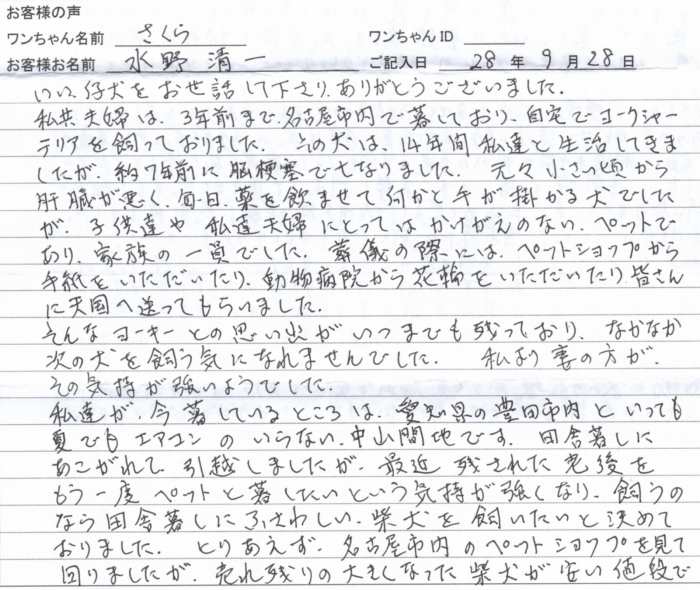 お客様の声
ワンちゃん名前 さくら ワンちゃんID
お客様お名前 水野清一 ご記入日 28年9月28日
いい仔犬をお世話して下さり、ありがとうございました。
私共夫婦は、3年前まで名古屋市内で暮しており、自宅でヨークシャー
テリアを飼っておりました。その犬は、14年間私達と生活してきま
したが、約7年前に脳梗塞で亡なりました。元々小さい頃から
肝臓が悪く、毎日、薬を飲ませて何かと手が掛かる犬でした
が、子供達や私達夫婦にとってはかけがえのない、ペットで
あり、家族の一員でした。葬儀の際には、ペットショップから
手紙をいただいたり、動物病院から花輪をいただいたり皆さん
に天国へ送ってもらいました。
そんなヨーキーとの思い出がいつまでも残っており、なかなか
次の犬を飼う気になれませんでした。私より妻の方が、
その気持が強いようでした。
私達が、今暮しているところは、愛知県の豊田市内といっても
夏でもエアコンのいらない、中山間地です。田舎暮しに
あこがれて、引越しましたが、最近残された老後を
もう一度ペットと暮したいという気持が強くなり、飼うの
なら田舎暮しにふさわしい、柴犬を飼いたいと決めて
おりました。とりあえず、名古屋市内のペットショップを見て
回りましたが、売れ残りの大きくなった柴犬が安い値段で